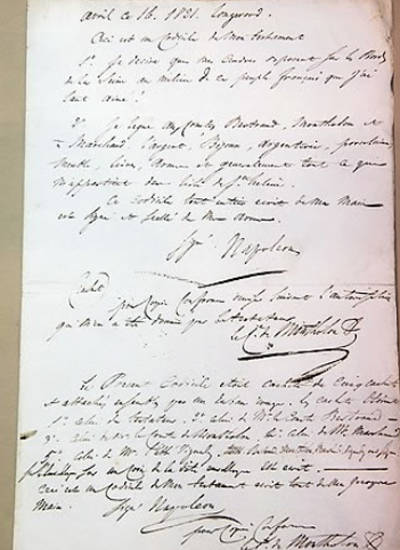 avril ce 16. 1821. Longwood.
Ceci est un Codicile de Mon testament
1º. je désire que mes Cendres reposent sur les Bords
de la Seine au milieu de ce peuple français que j'ai
tant aimé.
2º. je lègue aux Comtes Bertrand, Montholon et
à Marchand l'argent, Bijoux, argenterie, porcelaine,
Meubles, livres, armes et generalement tout ce qui
m'appartient dans l'isle de Ste. helene.
Ce Codicile tout entier ecrit de Ma Main
est signé et scellé de Mes armes.
Signé Napoleon
Cachet
pour Copie Conforme suivant l'autorisation
qui m'en a été donnée par le testateur
le Cte. de Montholon
Le Present Codicile etait cacheté de Cinq cachets
et attachés ensemble par un ruban rouge. les cachets etaient
1º. celui du testateur. 2º. celui de Mr. le Comte Bertrand
3º. celui de Mr. le Comte de Montholon 4o. celui de Mr. Marchand
5º. celui de Mr. l'abbé Vignaly
est ecrit.
Ceci est un Codicile de Mon testament ecrit tout de Ma propre
Main. Signé Napoleon.
pour Copie Conforme
le Cte. de Montholon